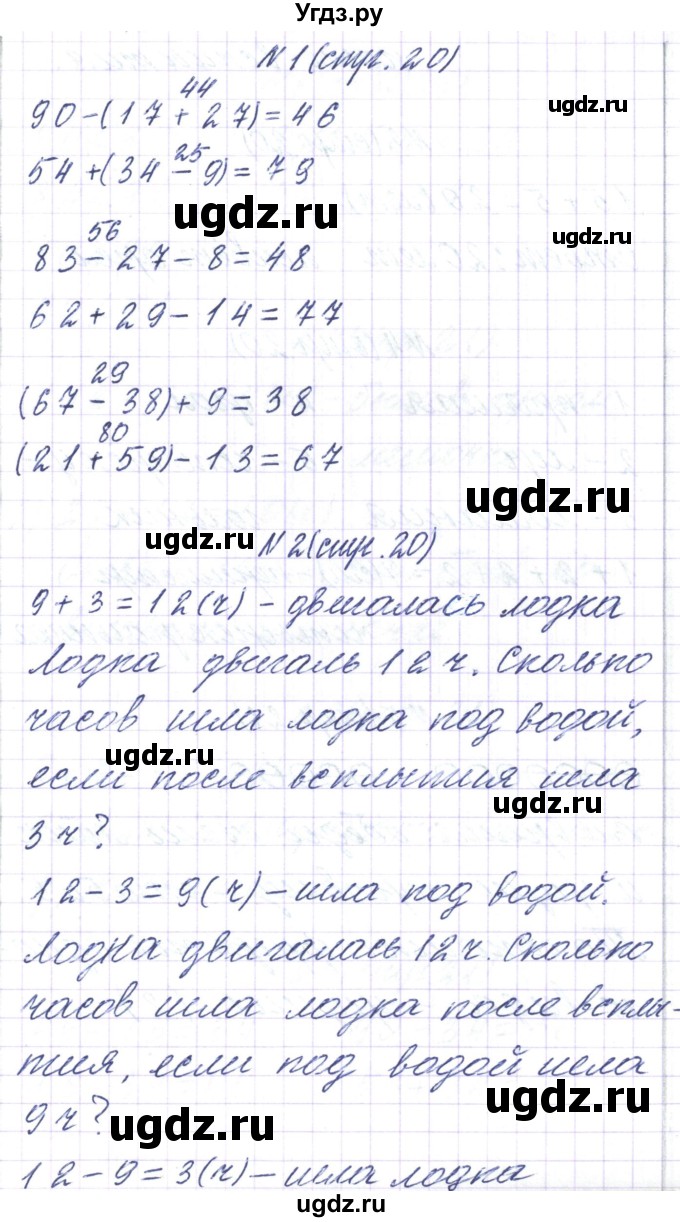 Угдз.ру
N 1 (стр. 20)
44
90-(17+27)=46
ugdz.ru
25
54+(34-9)=79
ugdz.ru
ugdz.ru
56
83-27-8=48
62+29-14=77
29
(67-38)+9=38
80
(21+59)-13=67
ugdz.ru
ugdz.ru
N 2 (стр. 20)
9+3=12(ч) - двигалась лодка
Лодка двигаль 12 ч. Сколько
часов шла лодка под водой,
ugdz.ru
если после всплытия шла
ugdz.ru
3 ч?
12-3=9(ч) - шла под водой.
Лодка двигалась 12 ч. Сколько
часов шла лодка после всплы-
тия, если под водой шла
ugdz.ru
9 ч?
ugdz.ru
12-9=3(ч) - шла лодка
ugdz.ru